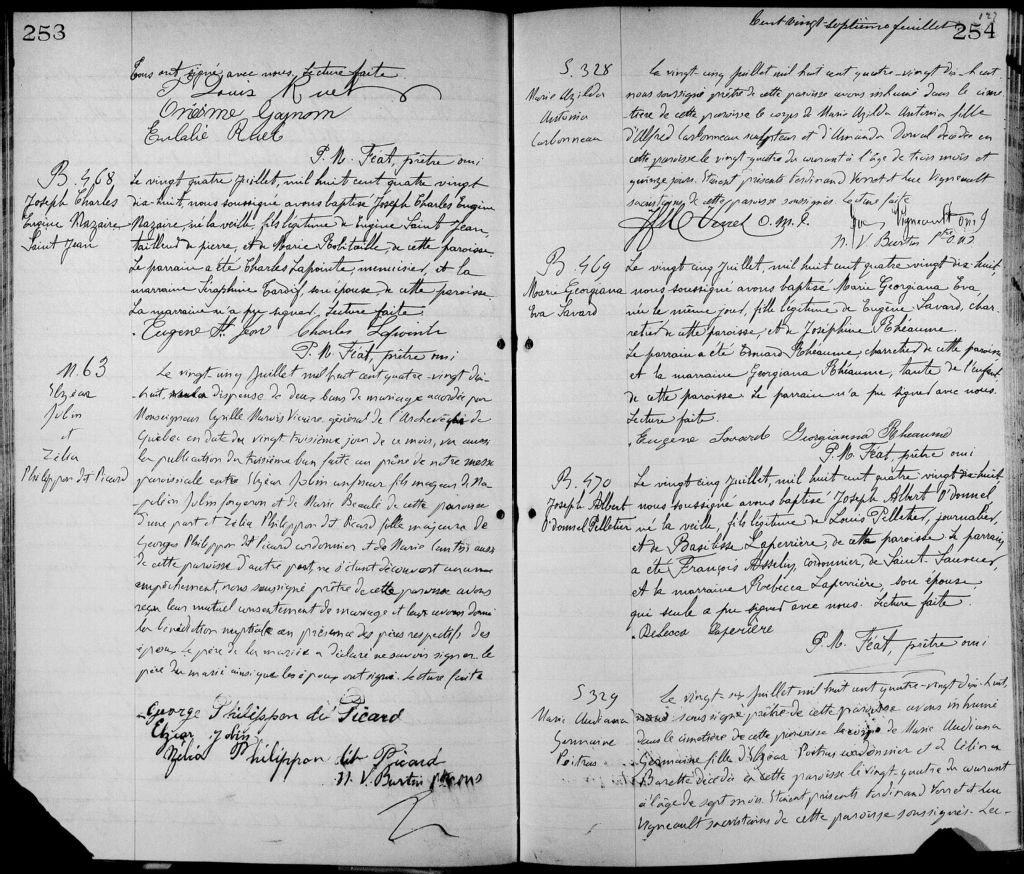 253
Tous ont signé avec nous. Lecture faite.
Louis Ruel
Onésime Gagnon
Eulalie Ruel
P. M. Féat, prêtre omi
B. 468
Joseph Charles
Eugène Nazaire
Saint Jean
Le vingt quatre Juillet, mil huit cent quatre vingt
dix-huit, nous soussigné avons baptisé Joseph Charles Eugène
Nazaire, né la veille, fils légitime de Eugène Saint Jean,
tailleur de pierre, et de Marie Robitaille, de cette paroisse.
Le parrain a été Charles Lapointe, menuisier, et la
marraine Séraphine Tardif, son épouse de cette paroisse.
La marraine n'a pu signer, Lecture faite.
Eugene St. Jean Charles Lapointe
P. M. Féat, prêtre omi
M. 63
Elzéar
Jolin
et
Zélia
Philippon dit Picard
Le vingt cinq Juillet mil huit cent quatre-vingt dix
huit, dispense de deux bans de mariage accordée par
Monseigneur Cyrille Marois Vicaire général de l'Archevêché de
Québec en date du vingt troisième jour de ce mois, vu aussi
la publication du troisième ban faite au prône de notre messe
paroissiale entre Elzéar Jolin fils majeur de Na-
poléon Jolin forgeron et de Marie Beaulé de cette paroisse
d'une part et Zélia Philippon dit Picard fille majeure de
Georges Philippon dit Picard cordonnier et de Marie aussi
de cette paroisse d'autre part, ne s'étant découvert aucun
empêchement, nous soussigné prêtre de cette paroisse avons
reçu leur mutuel consentement de mariage et leur avons donné
la bénédiction nuptiale en présence des pères respectifs des
époux. Le père de la mariée a déclaré ne savoir signer. le
père du marié ainsi que les époux ont signé. Lecture faite
George Philippon dit Picard
Elzear Jolin
Zélia Philippon dit Picard
N. V. Burtin ptre omi
Cent vingt-septième feuillet 127
254
S. 328
Marie Azilda
Antonia
Carbonneau
Le vingt-cinq Juillet mil huit cent quatre-vingt dix-huit
nous soussigné prêtre de cette paroisse avons inhumé dans le cime-
tière de cette paroisse le corps de Marie Azilda Antonia fille
d'Alfred Carbonneau sculpteur et d'Amanda Dorval décédée en
cette paroisse le vingt-quatre du courant à l'âge de trois mois et
quinze jours. Etaient présents Ferdinand Verret et Luc Vigneault
sacristains de cette paroisse soussignés. Lecture faite
Verret O. M. I. Luc Vigneault omi
N. V. Burtin ptre O.M.I.
B. 469
Marie Georgiana
Eva Savard
Le vingt cinq Juillet, mil huit cent quatre vingt dix-huit
nous soussigné avons baptisé Marie Georgiana Eva
née le même jour, fille légitime de Eugène Savard, char-
retier de cette paroisse, et de Joséphine Rhéaume.
Le parrain a été Edouard Rhéaume, charretier de cette paroisse
et la marraine Georgiana Rhéaume, tante de l'enfant,
de cette paroisse. Le parrain n'a pu signer avec nous.
Lecture faite.
Eugene Savard Georgianna Rheaume
P. M. Féat, prêtre omi
B. 470
Joseph Albert
O'donnel Pelletier
Le vingt cinq Juillet, mil huit cent quatre vingt dix-huit
nous soussigné avons baptisé Joseph Albert O'donnel
né la veille, fils légitime de Louis Pelletier, journalier,
et de Basilisse Laperrière, de cette paroisse. Le parrain
a été François Asselin, cordonnier, de Saint-Sauveur,
et la marraine Rebecca Laperrière, son épouse
qui seule a pu signer avec nous. Lecture faite.
Rebecca Laperière
P. M. Féat, prêtre omi
S 329
Marie Audiana
Germaine
Poitras
Le vingt-six Juillet mil huit cent quatre-vingt dix-huit,
nous soussigné prêtre de cette paroisse avons inhumé
dans le cimetière de cette paroisse le corps de Marie Audiana
Germaine fille d'Elzéar Poitras cordonnier et de Zélina
Barette décédée en cette paroisse le vingt-quatre du courant
à l'âge de sept mois. Etaient présents Ferdinand Verret et Luc
Vigneault sacristains de cette paroisse soussignés. Lec-